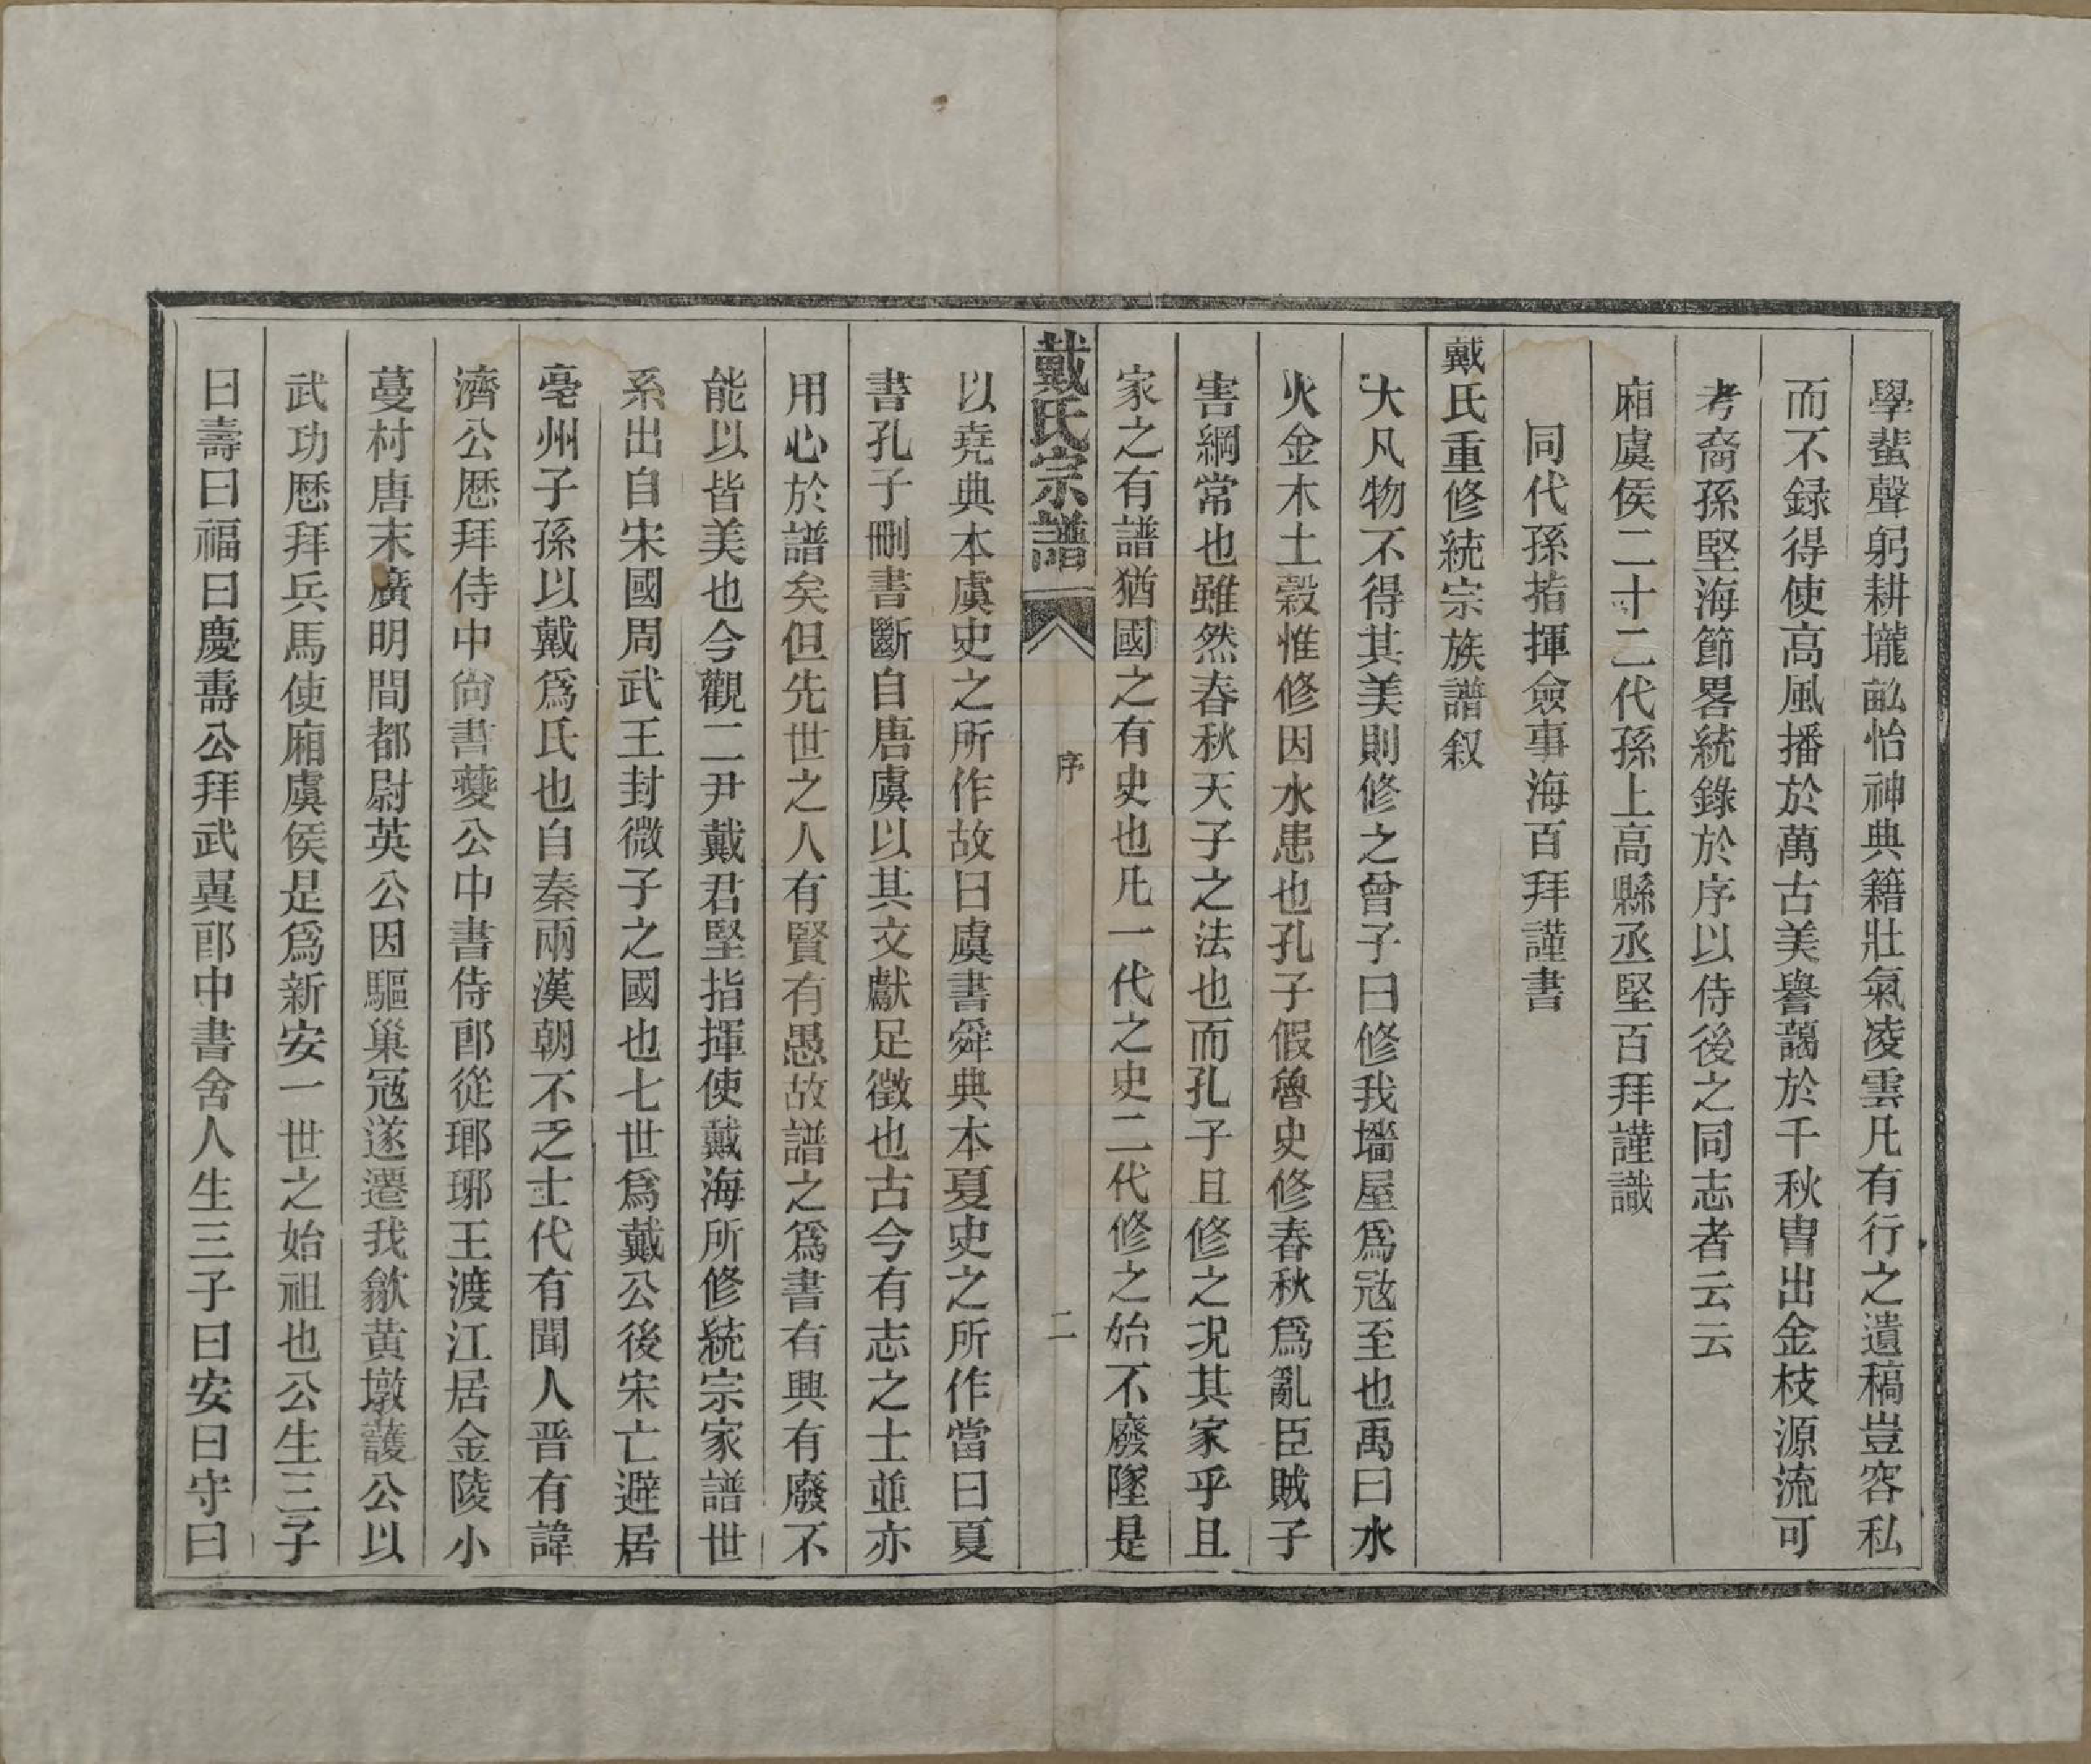 學蜚聲躬耕壠畆怡神典籍壯氣凌雲凡有行之遺稿豈容私
而不録得使高風播於萬古美譽藹於千秋冑出金枝源流可
考裔孫堅海節畧統錄於序以侍後之同志者云云
廂虞侯二十二代孫上高縣丞堅百拜謹識
同代孫指揮僉事海百拜謹書
戴氏重修統宗族譜叙
大凡物不得其美則修之曾子曰修我墻屋爲冦至也禹曰水
火金木土穀惟修因水患也孔子假魯史修春秋爲亂臣賊子
害綱常也雖然春秋天子之法也而孔子且修之况其家乎且
家之有譜猶國之有史也凡一代之史二代修之始不廢墜是
戴氏宗譜
序
二
以堯典本虞史之所作故曰虞書舜典本夏史之所作當曰夏
書孔子刪書斷自唐虞以其文獻足徵也古今有志之士並亦
用心於譜矣但先世之人有賢有愚故譜之爲書有興有廢不
能以皆美也今觀二尹戴君堅指揮使戴海所修統宗家譜世
系出自宋國周武王封微子之國也七世爲戴公後宋亡避居
亳州子孫以戴爲氏也自秦兩漢朝不乏士代有聞人晋有諱
濟公歷拜侍中尙書夔公中書侍郎從瑯琊王渡江居金陵小
蔓村唐末廣明間都尉英公因驅巢冦遂遷我歙黃墩護公以
武功歷拜兵馬使廂虞侯是爲新安一世之始祖也公生三子
曰壽曰福曰慶壽公拜武翼郎中書舍人生三子曰安曰守曰